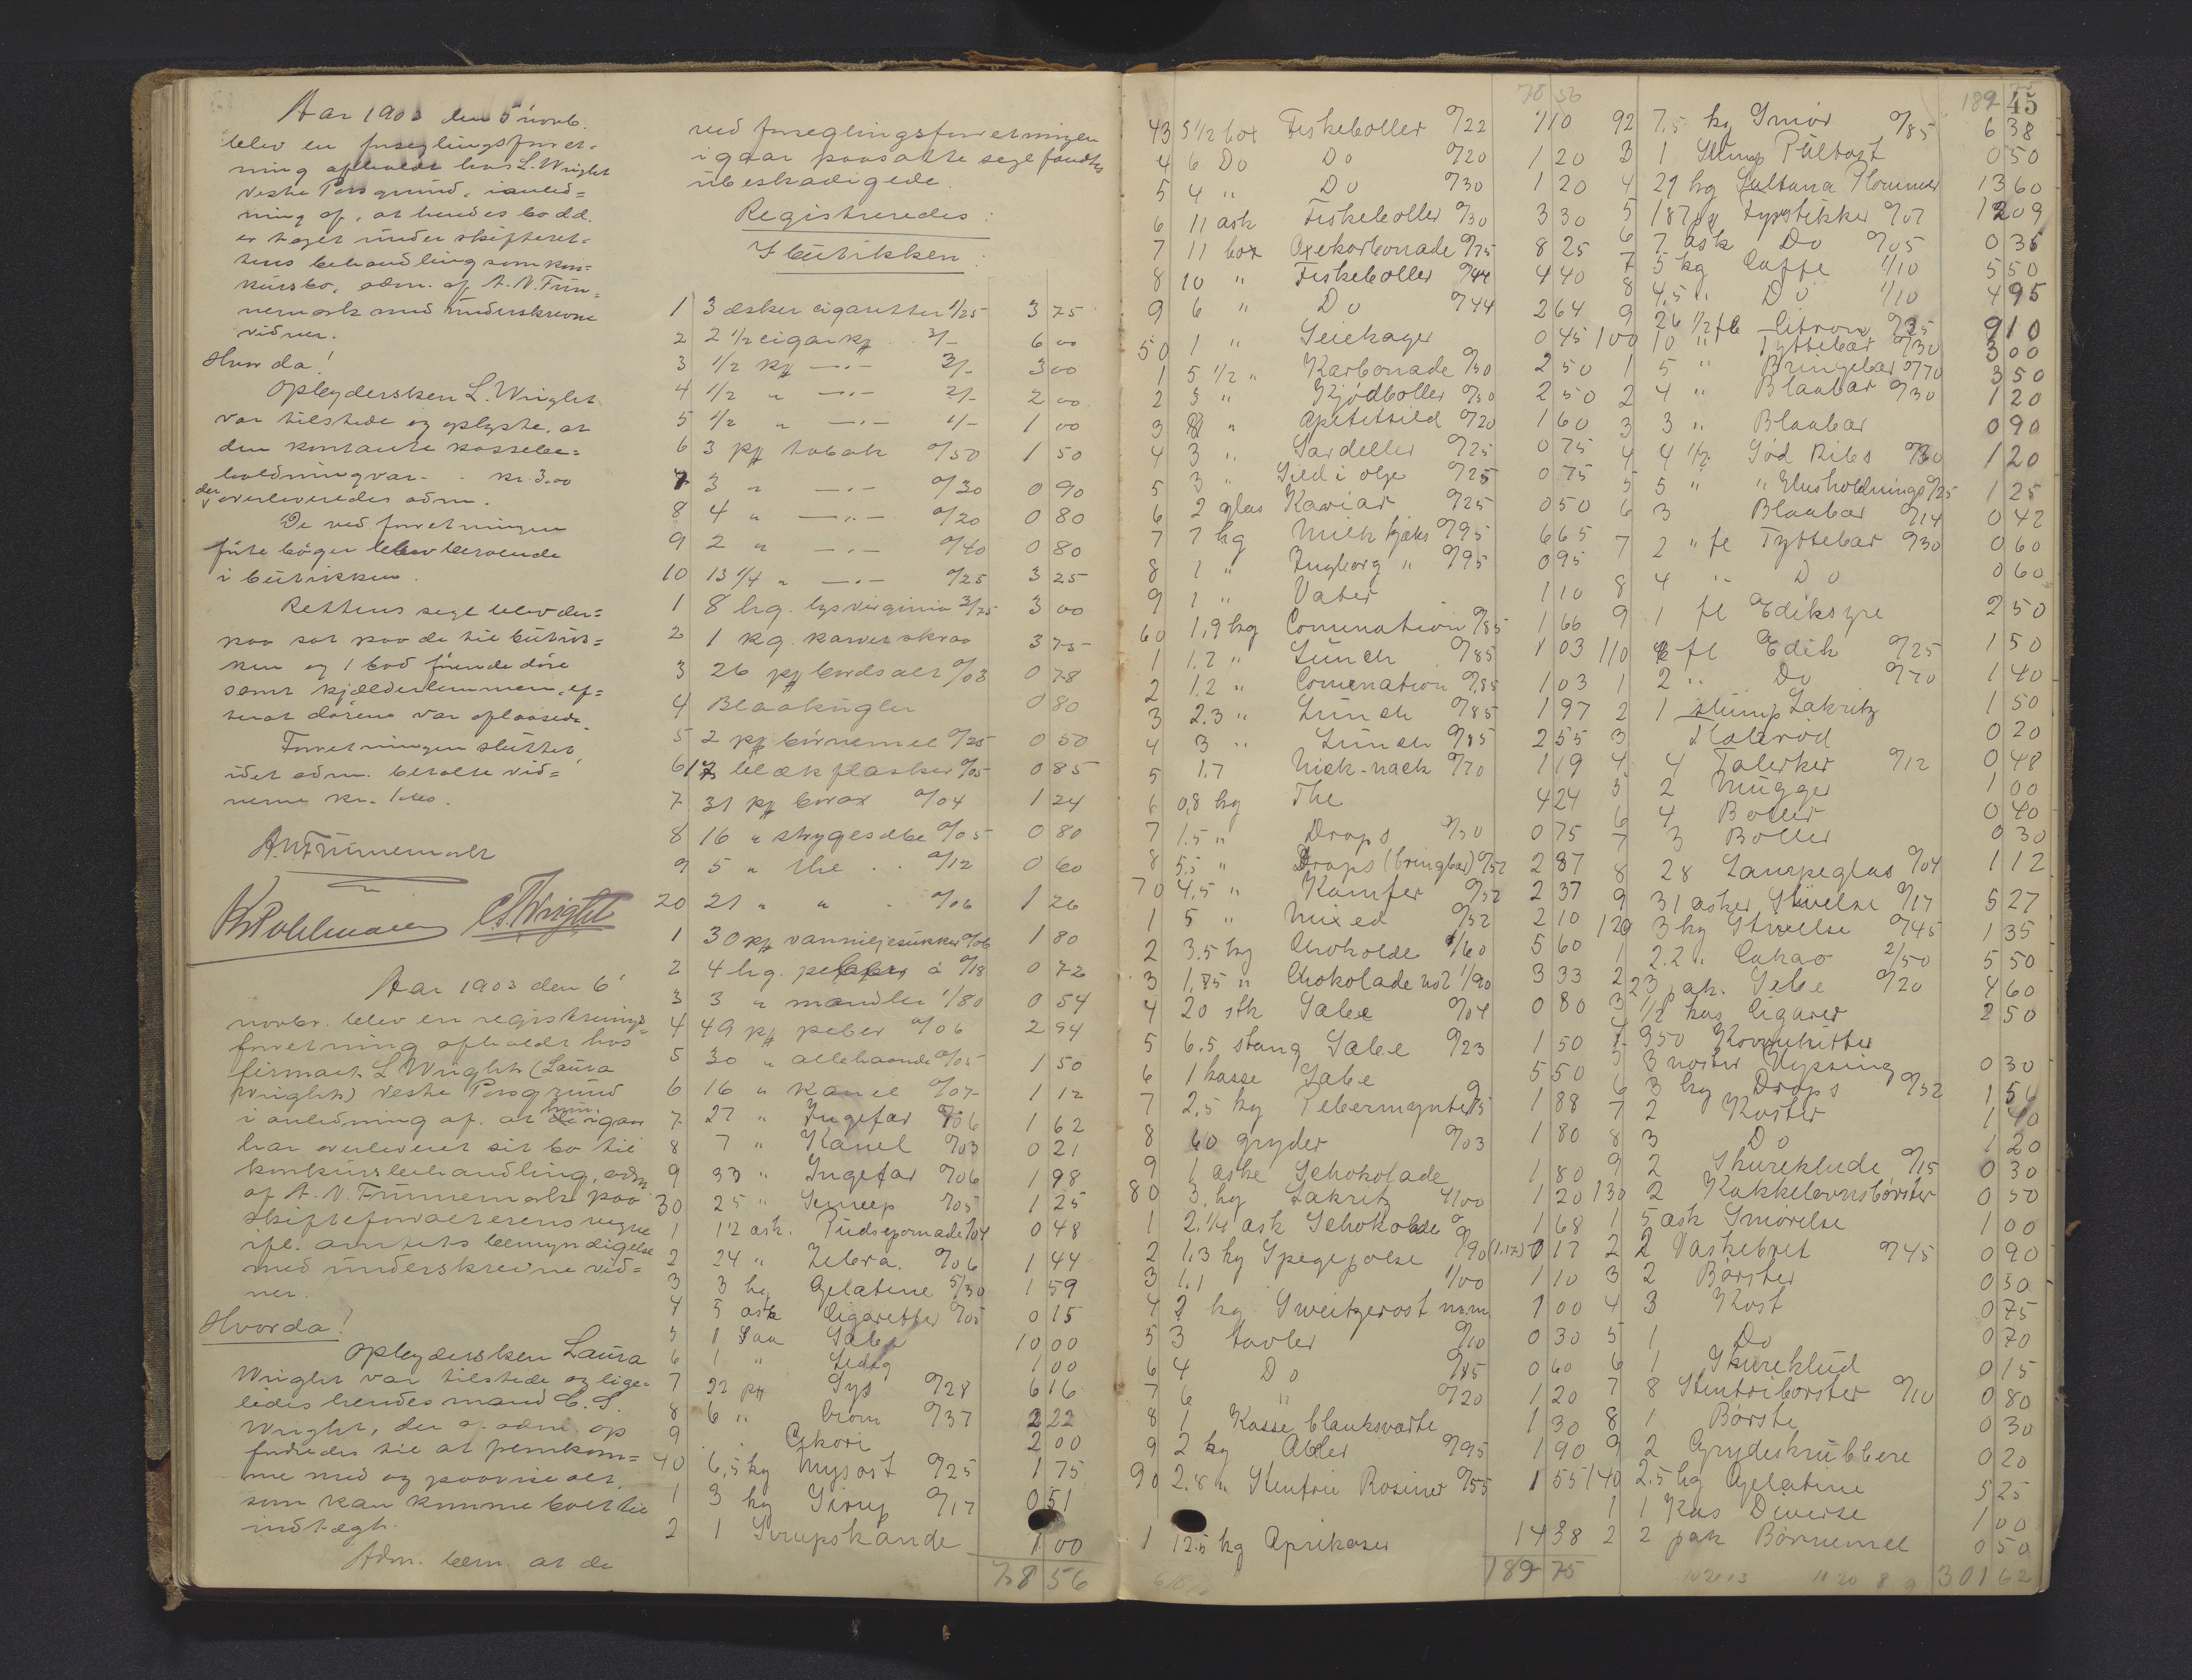 Aar 1903 den 5' novb.
blev en forseglingsforret-
ning afholdt hos L. Wright
Vestre Porsgrund, i anled-
ning af, at hendes bo d.d.
er taget under skifteret-
tens behandling som kon-
kursbo, adm. af A. N. Funne-
nemark med underskrevne
vidner.
Hvorda!
Opbydersken L. Wright
var tilstede og oplyste, at
den kontante kassebe-
holdning var - kr 3.00
der overleveredes adm.
De ved forretningen
førte bøger blev beroende
i butikken.
Rettens segl blev der-
paa sat paa de til butik-
ken og 1 bod førende døre
samt kjælderlemmen, ef-
terat dørene var aflaasede.
Forretningen sluttet,
idet adm. betalte vid-
nerne kr.
A. N. Funnemark
Pohlmann C S Wright
Aar 1903 den 6'
novbr. blev en registrerings-
forretning afholdt hos
firmaet L Wright (Laura
Wright) Vestre Porsgrund
i anledning af, at hun igaar
har overleveret sit bo til
konkursbehandling, adm.
af A. N. Funnemark paa
skifteforvalterens vegne
ifl. amtets bemyndigelse
med underskrevne vid-
ner.
Hvorda!
Opbydersken Laura
Wright var tilstede og lige-
ledes hendes mand C. S.
Wright, der af adm. op
fordredes til at fremkom-
me med og paavise alt,
som kan komme boet til
indtægt.
Adm. bem. at de
ved forseglingsforretningen
igaar paasatte segl fandtes
ubeskadigede.
Registreredes:
I butikken:
1 3 æsker cigaretter 1/25 3 75
2 2 1/2 cigarks 3/- 6 00
3 1/2 ks —"— 3/- 3 00
4 1/2 " —"— 2/- 2 00
5 1/2 " —"— 1/- 1 00
6 3 pk tobak 0/50 1 50
7 3 " —"— 0/30 0 90
8 4 " —"— 0/20 0 80
9 2 " —"— 0/40 0 80
10 13 1/4 " —"— 0/25 3 25
1 8 hg. lys virginia 3/75 3 00
2 1 kg. karverskraa 3 75
3 26 pk bordsalt 0/03 0 78
4 Blaakugler 0 80
5 2 pk børnemel 0/25 0 50
6 17 blækflasker 0/05 0 85
7 31 pk borax 0/04 1 24
8 16 " strygesølv 0/05 0 80
9 5 " the 0/12 0 60
20 21 " " 0/06 1 26
1 30 pk vanniljesukker 0/06 1 80
2 4 hg. peber á 0/18 0 72
3 3 " mandler 1/80 0 54
4 49 pk peber 0/06 2 94
5 30 " allehaande 0/05 1 50
6 16 " kanel 0/07 1 12
7 27 " Ingefær 0/06 1 62
8 7 " Kanel 0/03 0 21
9 33 " Ingefær 0/06 1 98
30 25 " Senep 0/05 1 25
1 12 ask. Pudsepomade 0/04 0 48
2 24 " Zebra. 0/06 1 44
3 3 hg Gelatine 5/30 1 59
4 5 ask Cigaretter 0/05 0 15
5 1 Saa Sæbe 10 00
6 1 " Ledig 1 00
7 22 pk Lys 0/28 6 16
8 6 " Crom 0/37 2 22
9 Cikori 2 00
40 6,5 kg Mysost 0/25 1 75
1 3 kg Sirup 0/17 0 51
2 1 Sirupskande 1 00
78 56
78 56
43 5 1/2 box Fiskeboller 0/22 1 10
4 6 Do Do 0/20 1 20
5 4 " Do 0/30 1 20
6 11 ask Fiskeboller 0/30 3 30
7 11 box Oxekarbonade 0/75 8 25
8 10 " Fiskeboller 0/44 4 40
9 6 " Do 0/44 2 64
50 1 " Seiekager 0 45
1 5 1/2 " Karbonade 0/50 2 50
2 5 " Kjødboller 0/50 2 50
3 8 " Apetitsild 0/20 1 60
4 3 " Sardeller 0/25 0 75
5 3 " Sild i olje 0/25 0 75
6 2 glas Kaviar 0/25 0 50
7 7 kg Milk kjeks 0/95 6 65
8 1 " Ingborg " 0/95 0 95
9 1 " Vater 1 10
60 1,9 kg Comination 0/85 1 66
1 1.2 " Lunch 0/85 1 03
2 1.2 " Comenation 0/85 1 03
3 2.3 " Lunch 0/85 1 97
4 3 " Lunch 0/85 2 55
5 1.7 Nick-nack 0/70 1 19
6 0,8 kg The 4 24
7 1.5 " Drops 0/50 0 75
8 5.5 " Drops (bringbær) 0/52 2 87
70 4,5 " Kamfer 0/52 2 37
1 5 " Mixed 0/52 2 10
2 3.5 kg Choholde 1/60 5 60
3 1,85 " Chokolade No2 1/90 3 33
4 20 stk Sæbe 0/04 0 80
5 6.5 stang Sæbe 0/23 1 50
6 1 kasse Sæbe 5 50
7 2,5 kg Pebermynte 0/75 1 88
8 60 gryder 0/03 1 80
9 1 aske Schokolade 1 80
80 3. hg Lakrits 4/00 1 20
1 2 1/4 ask Schokolade 1 68
2 1.3 kg Spegepølse 0/90 (1.17) 0 17
3 1.1 1/00 1 10
4 2 kg Sweitzerost m.m. 1 00
5 3 tavler 0/10 0 30
6 4 Do 0/15 0 60
7 6 " 0/20 1 20
8 1 Kasse blanksværte 1 30
9 2 kg 0/95 1 90
90 2.8 " Stenfrie Rosiner 0/55 1 55
1 12.5 kg Aprikoser 14 38
189 75
189 45
92 7.5 kg Smør 0/85 6 38
3 1 Slump Pultost 0 50
4 27 kg Sultana Blommer 13 60
5 187 pk Fyrstikker 0/07 12 09
6 7 ask Do 0/05 0 35
7 5 kg Caffe 1/10 5 50
8 4,5 " Do 1/10 4 95
9 26 1/2 fl Citron 0/35 9 10
100 10 " Tyttebær 0/30 3 00
1 5 " Bringebær 0/70 3 50
2 4 " Blaabær 0/30 1 20
3 3 " Blaabær 0 90
4 4 1/2 Sød Ribs 0/30 1 20
5 5 " " Husholdnings 0/25 1 25
6 3 Blaabær 0/14 0 42
7 2 " fl Tyttebær 0/30 0 60
8 4 " Do 0 60
9 1 fl Ediksyre 2 50
110 6 fl Edik 0/25 1 50
1 2 " Do 0/70 1 40
2 1 slump Lakritz 1 50
3 Flatbrød 0 20
4 4 Talerker 0/12 0 48
5 2 Mugger 1 00
6 4 Boller 0 40
7 3 Boller 0 30
8 28 Lampeglas 0/04 1 12
9 31 asker Stivelse 0/17 5 27
120 3 kg Stivelse 0/45 1 35
1 2.2 " Cakao 2/50 5 50
2 23 pak. Sebe 0/20 4 60
3 1/2 kas Cigarer 2 50
4 950 Konvolutter
5 3 Hyssing 0 30
6 3 kg Drops 0/52 1 56
7 2 Koster 1 40
8 3 Do 1 20
9 2 Skureklude 0/15 0 30
130 2 Kakkelovnsbørster 0 50
1 5 ask Smørelse 1 00
2 2 Vaskebret 0/45 0 90
3 2 Børster 0 50
4 3 Kost 0 75
5 1 Do 0 70
6 1 Skureklud 0 15
7 8 Stentøibørster 0/10 0 80
8 1 Børste 0 30
9 2 Grydeskrubbere 0 20
140 2.5 kg Gelatine 5 25
1 1 Kas Diverse 1 00
2 2 pak Børnemel 0 50
301 62